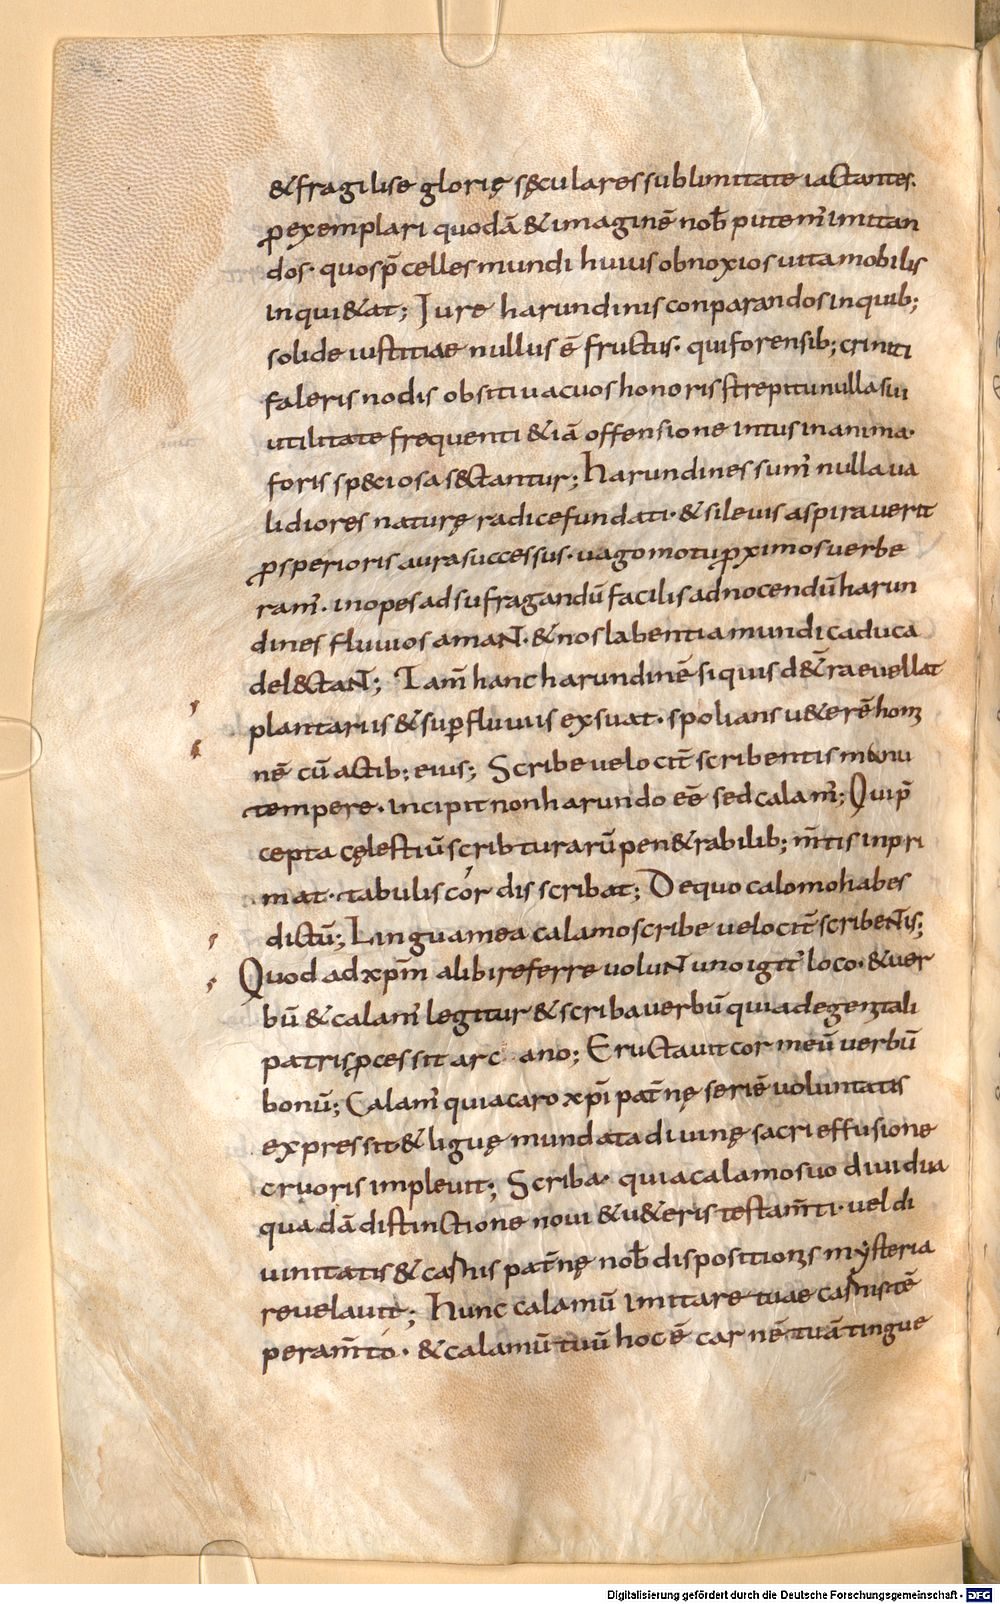 &fragilise glorię sęculares sublimitate iactantes.
ꝓexemplari quodā & imaginē nob̄ putem̄ imitan
dos· quos p̄celles mundi huius obnoxios uita mobilis
inqui&at; Iure harundinis conparandos in quib;
solide iustitiae nullus ē fructus· qui forensib; criniti
faleris nodis obsiti uacuos honoris strepitu nulla sui
utilitate frequenti & iā offensione intus inania·
foris speciosa sectantur; harundines sum̄ nulla ua
lidiores naturę radice fundati· & si leuis aspirauerit
ꝓsperioris aura successus· uago motu ꝓximos uerbe
ram̄· inopes ad sufragandū faciles ad nocendū harun
dines fluuios amant· & nos labentia mundi caduca
del&tant; Tam̄ hanc harundinē si quis d& ̄ra euellat
plantariis & supfluuiis exsuat· spolians u&erē homi
nē cū actib; eius; Scribe uelocit̄ scribentis manu
tempere· incipit non harundo eē sed calam̄; Qui p̄
cepta cęlestiū scribturarū pen&rabilib; m̄tis inpri
mat· tabulis cordis scribat; De quo calomo habes
dictū; Lingua mea calamo scribe uelocit̄ scribentis;
Quod ad xp̄m alibi referre uolunt uno igit̄ loco· & uer
bū & calam̄ legitur & scriba uerbū quia de genitali
patris ꝓcessit arc ano; Eructauit cor meū uerbū
bonū; Calam̄ quia caro xp̄i pat̄nę seriē uoluntatis
expressit & liguę mundata diuinę sacri effusione
cruoris impleuit; Scriba· quia calamo suo diuidua
quadā distinctione noui & u&eris testam̄ti· uel di
uinitatis & carnis pat̄nę nob̄ dispositionis mysteria
reuelauit; hunc calamū imitare tuae carnis tē
peram̄to· & calamū tuū hoc ē carnē tuā tingue
Digitalisierung gefördert durch die Deutsche Forschungsgemeinschaft - DFG